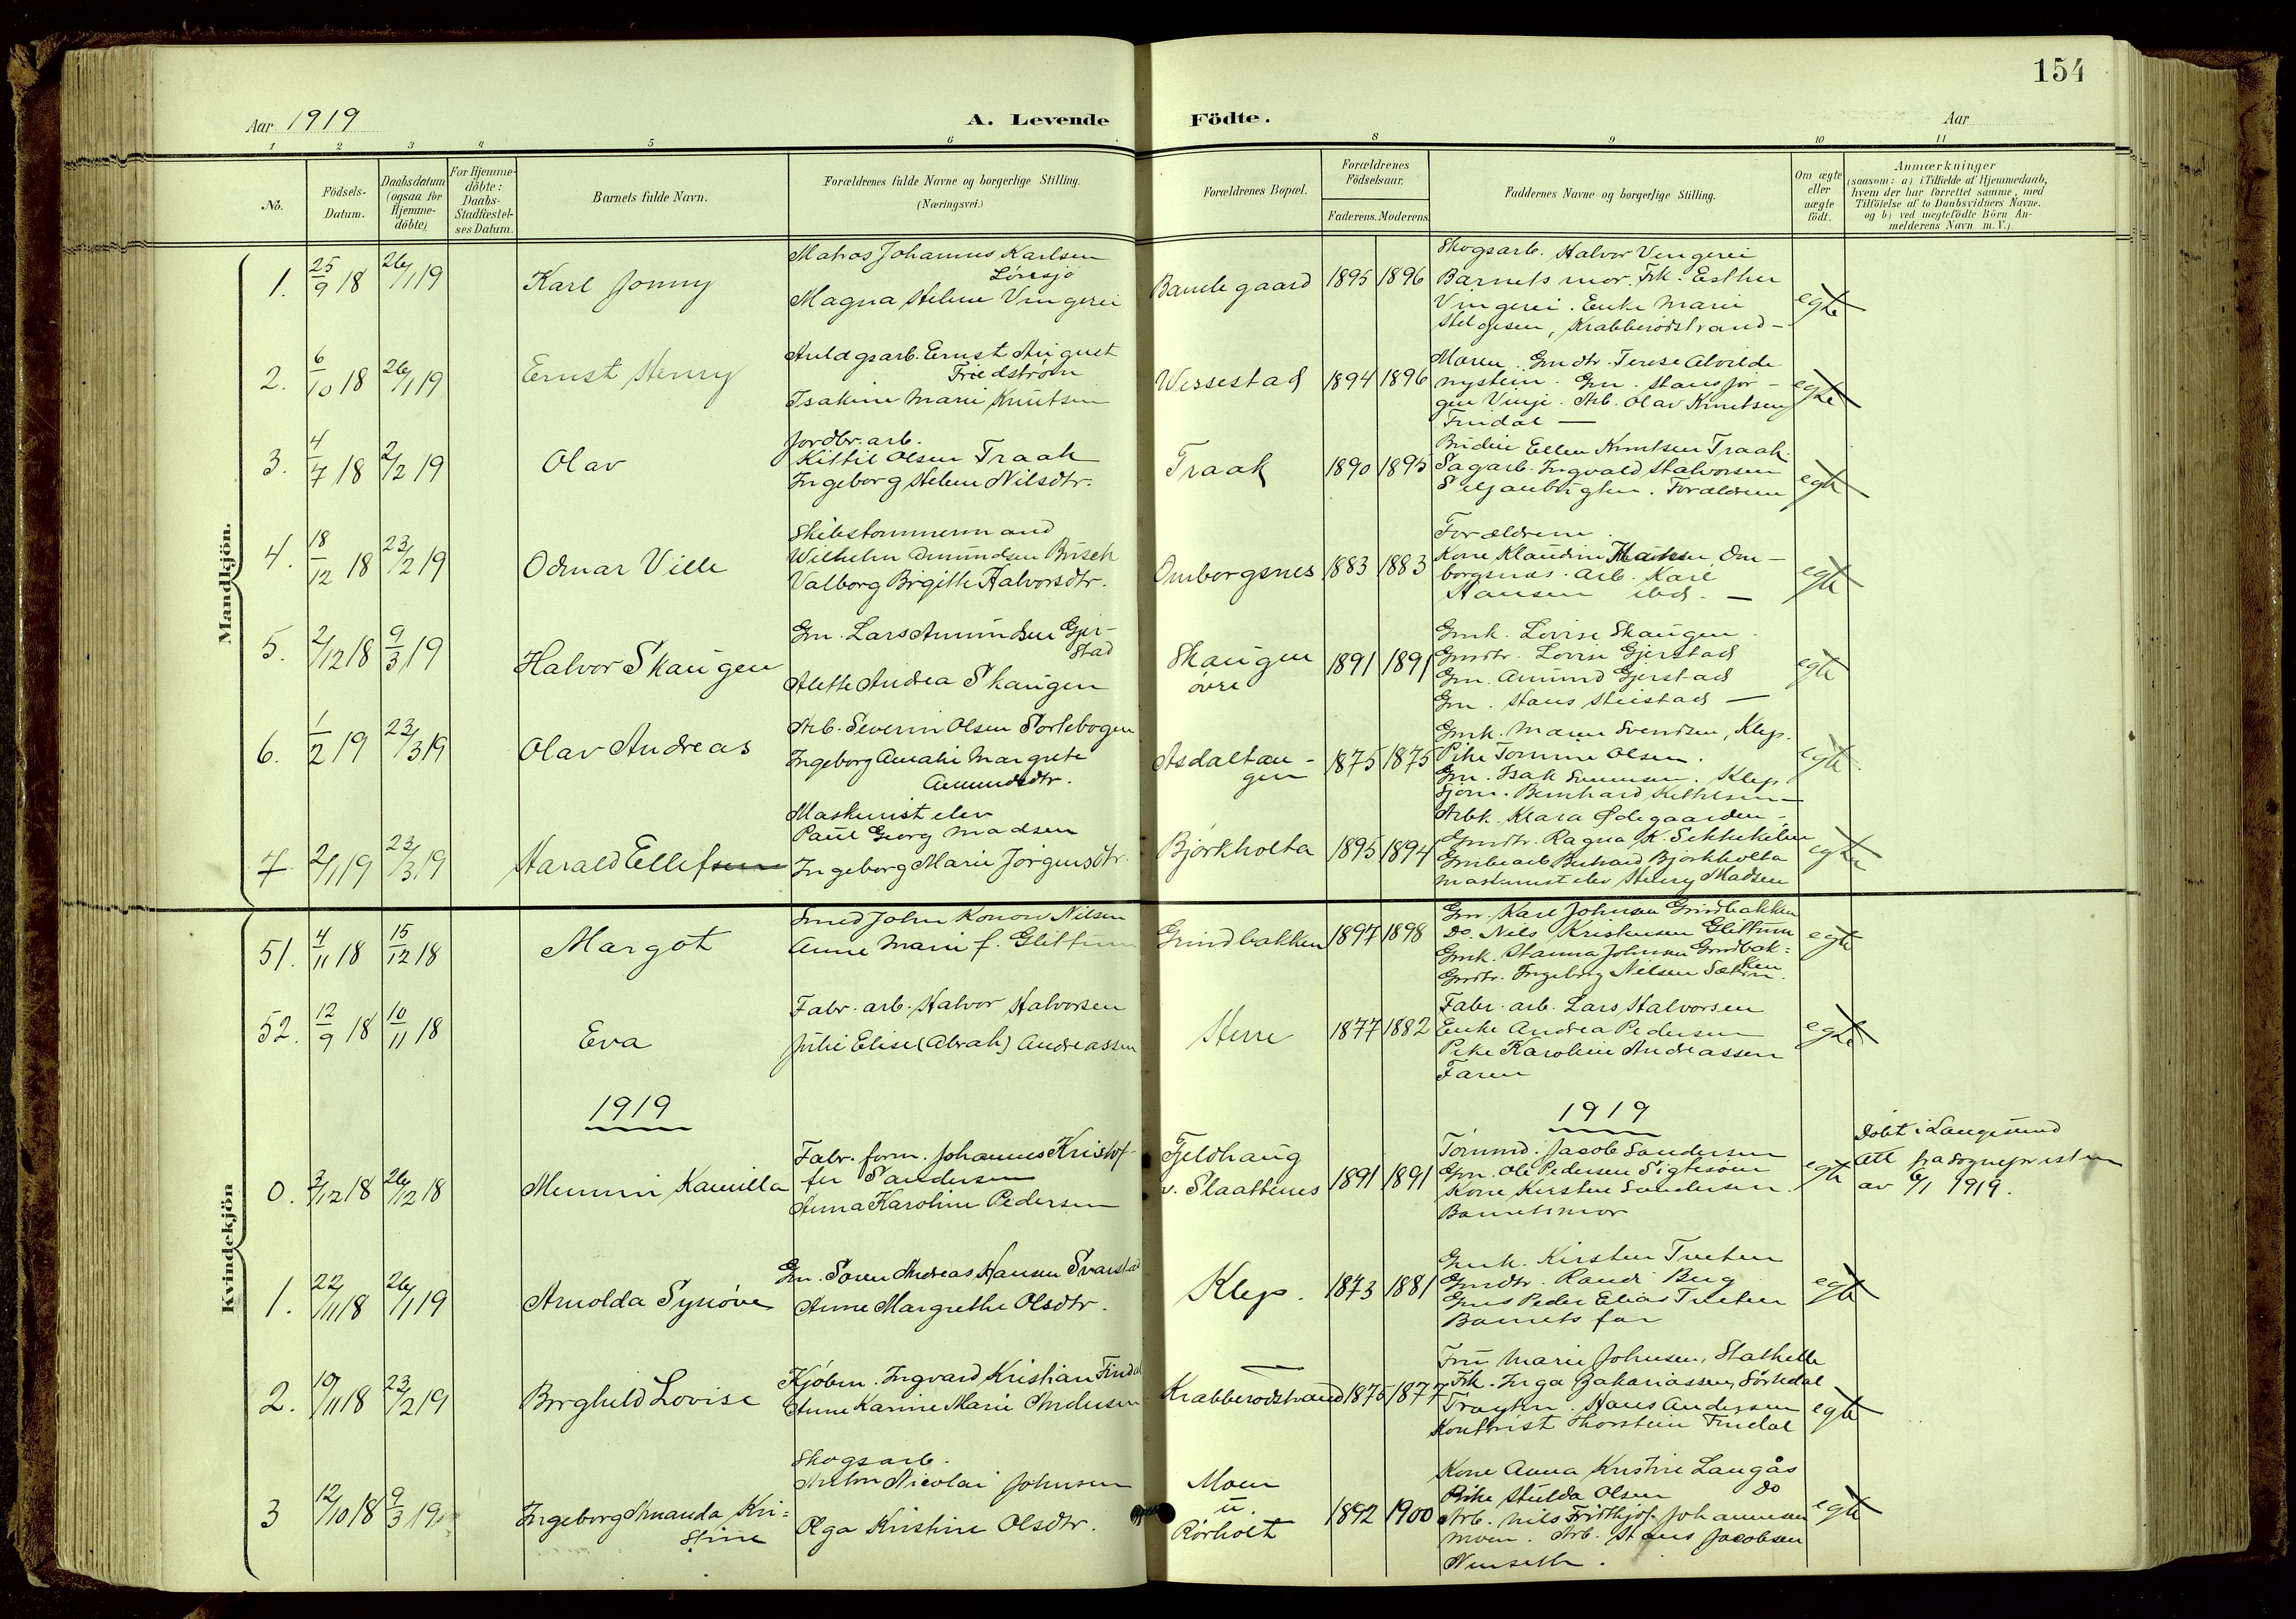 154
Aar 1919
A. Levende Födte.
Aar
1 2 3 4 5 6 8 9 10 11
No.
Födsels-
Datum.
Daabsdatum
(ogsaa for
Hjemme-
döbte)
For Hjemme-
döbte:
Daabs-
Stadfæstel-
ses Datum.
Barnets fulde Navn.
Forældrenes fulde Navne og borgerlige Stilling.
(Næringsvei.)
Forældrenes Bopæl.
Forældrenes
Födselsaar.
Faderens. Moderens.
Faddernes Navne og borgerlige Stilling.
Om ægte
eller
uægte
födt.
Anmærkninger
(saasom: a) i Tilfælde af Hjemmedaab,
hvem der har forrettet samme, med
Tilföielse af to Daabsvidners Navne.
og b) ved uægtefödte Börn An-
melderens Navn m. V.)
Mandkjön.
1. 25/9 18 26/1 19 Karl Jonny
Matros Johannes Karlsen
Löresjö
Magna Helene Vingerei
Bamle gaard 1895 1896
Skogsarb. Halvor Vingerei
Barnets mor. Frk. Esther
Vingerei. Enke Marie
Helgesen, Krabberødstrand –
egte
2. 6/10 18 26/1 19 Ernst Henry
Anlagsarb. Ernst August
Friedström
Isakine Marie Knutsen
Wissestad 1894 1896
Moren. Gmdtr. Terese Alvilde
Nystein. Gm. Hans Jør-
gen Vinje. Arb. Olav Knutsen
Findal –
egte
3. 4/7 18 2/2 19 Olav
Jordbr. arb.
Kittil Olsen Traak
Ingeborg Helene Nilsdtr.
Traak 1890 1895
Budeie Ellen Knutsen Traak.
Sagarb. Ingvald Halvorsen
Foreldrene
egte
4. 18/12 18 23/2 19 Odmar Ville
Skibstømmermand
Wilhelm Amundsen Busch
Valborg Birgitte Halvorsdtr.
Omborgsnes 1883 1883
Forældrene.
Kone Klaudine Hansen, Om-
borgsnes. Arb. Karl
Hansen ibid. –
egte
5. 2/12 18 9/3 19 Halvor Skaugen
Gm. Lars Amundsen Gjer-
stad
Alette Andrea Skaugen
Skaugen
övre
1891 1891
Gmk. Lovise Skaugen.
Gmdtr. Lovise Gjerstad
Gm. Amund Gjerstad
Gm. Hans Stuistad –
egte
6. 1/2 19 23/3 19 Olav Andreas
Arb. Severin Olsen Tortebogen
Ingeborg Amalie Margrete
Amundsdtr.
Asdaltan-
gen
1875 1875
Gmk. Maren Svendsen, Klep.
Pike Tomine Olsen.
Gm. Isak Svennsen. Klep
Sjøm. Bernhard Kittilsen –
egte.
7 2/1 19 23/3 19 Harald Ellifsen
Maskinist elev
Paul Georg Madsen
Ingeborg Marie Jörgensdtr.
Bjørkholta 1895 1894
Arbk. Klara Ødegaarden –
Gmdtr. Ragna K. Sekkekilen
Grubearb. Bernhard Bjorkholta
Maskinist elev Henry Madsen
egte
Kvindekjön
51. 4/11 18 15/12 18 Margot
Smed John Konow Nilsen
Anne Marie f. Glittum
Grindbakken 1897 1898
Gm. Karl Johnsen Grindbakken
Do. Nils Kristensen Glittum
Gmk. Hanna Johnsen Grindbak=
ken
Gmdtr. Ingeborg Nilsen
egte
52. 12/9 18 10/11 18 Eva
Fabr. arb. Halvor Halvorsen
Julie Elise (Abrah) Andreassen
Herre 1877 1882
Fabr. arb. Lars Halvorsen
Enke Andrea Pedersen
Pike Karoline Andreassen
Faren
egte
1919
1919
0. 3/12 18 26/12 18 Memmi Kamilla
Fabr. form. Johannes Kristof-
fer Sandersen
Anna Karoline Pedersen
Fjeldhaug
v. Slaattenes
1891 1891
Tömmd. Jacob Sandersen
Gm. Ole Pedersen Sigtesöen
Kone Kirsten Sandersen.
Barnets mor
egte
Döbt i Langesund
Att fra sognepresten
av 6/1 1919.
1. 22/11 18 26/1 19 Arnolda Synöve
Gm. Søren Andreas Hansen Svarstad
Anne Margrethe Olsdtr.
Klep. 1873 1881
Gmk. Kirsten Tveten
Gmdtr. Randi Berg
Gms Peder Elias Tveten
Barnets far
egte
2. 10/11 18 23/2 19 Borghild Lovise
Kjöbm. Ingvard Kristian Findal
Anne Karine Marie Andersen
Krabberødstrand 1875 1877
Fru Marie Johnsen, Stathelle
Frk. Inga Zakariassen, Sørdal
Hans Andersen
Kontorist Thorstein Findal
egte
3 12/10 18 9/3 19 Ingeborg Amanda Kri=
stine
Skogsarb.
Anton Nicolai Johnsen
Olga Kristine Olsdtr.
Moen
u.
Rörholt
1892 1900
Kone Anna Kristine Langås
Pike Hulda Olsen Do
Arb. Nils Fridthjof Johannesen
Moen. Arb. Hans Jacobsen
Nenseth.
egte